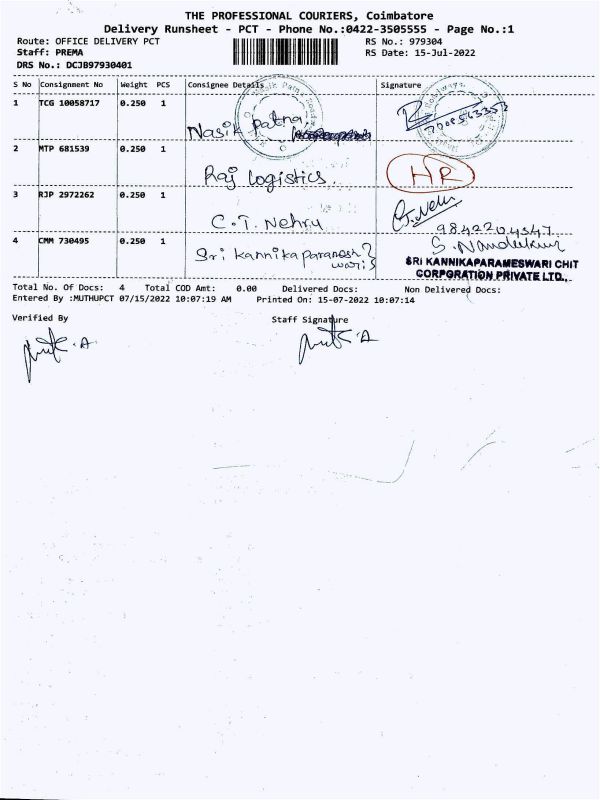 THE PROFESSIONAL COURIERS, Coimbatore
Delivery Runsheet - PCT - Phone No.:0422-3505555 - Page No.:1
Route: OFFICE DELIVERY PCT RS No.: 979304
Staff: PREMA RS Date: 15-Jul-2022
DRS No.: DCJB97930401
S No Consignment No Weight PCS Consignee Details Signature
1 TCG 10058717 0.250 1
Nasik patna
2 MTP 681539 0.250 1
Raj Logistics. HR
3 RJP 2972262 0.250 1
C.T. Nehru
9842204347
4 CMM 730495 0.250 1
Sri kannikaparamesh
wari
SRI KANNIKAPARAMESWARI CHIT
CORPORATION PRIVATE LTD.,
Total No. Of Docs: 4 Total COD Amt: 0.00 Delivered Docs: Non Delivered Docs:
Entered By :MUTHUPCT 07/15/2022 10:07:19 AM Printed On: 15-07-2022 10:07:14
Verified By Staff Signature